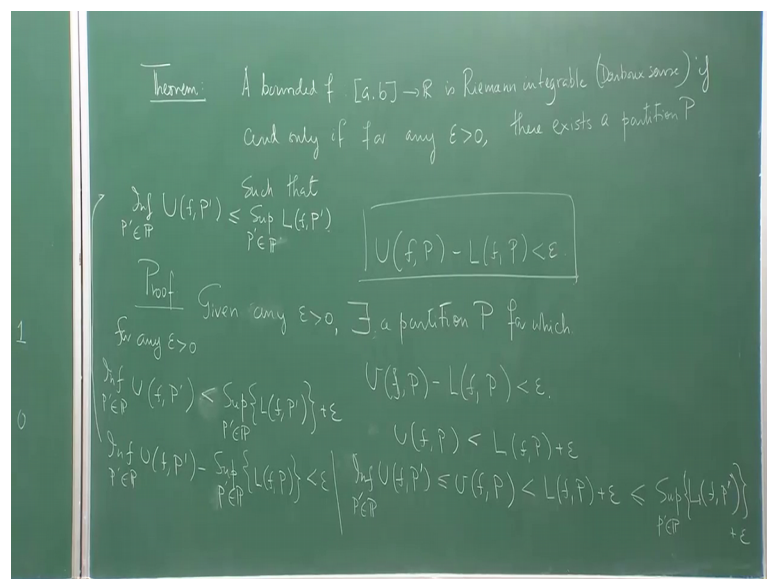 Theorem: A bounded f [a,b] → ℝ is Riemann integrable (Darboux sense) if
and only if for any ε>0, there exists a partition P
such that
Inf_{P'∈ℙ} U(f,P') ≤ Sup_{P'∈ℙ} L(f,P')
U(f,P) - L(f,P) < ε
Proof Given any ε>0, ∃ a partition P for which
for any ε>0
U(f,P) - L(f,P) < ε.
Inf_{P'∈ℙ} U(f,P') < Sup_{P'∈ℙ} {L(f,P')} + ε
U(f,P) < L(f,P) + ε
Inf_{P'∈ℙ} U(f,P') - Sup_{P'∈ℙ} {L(f,P)} < ε
Inf_{P'∈ℙ} U(f,P') ≤ U(f,P) < L(f,P) + ε ≤ Sup_{P'∈ℙ} {L(f,P')} + ε
1
0